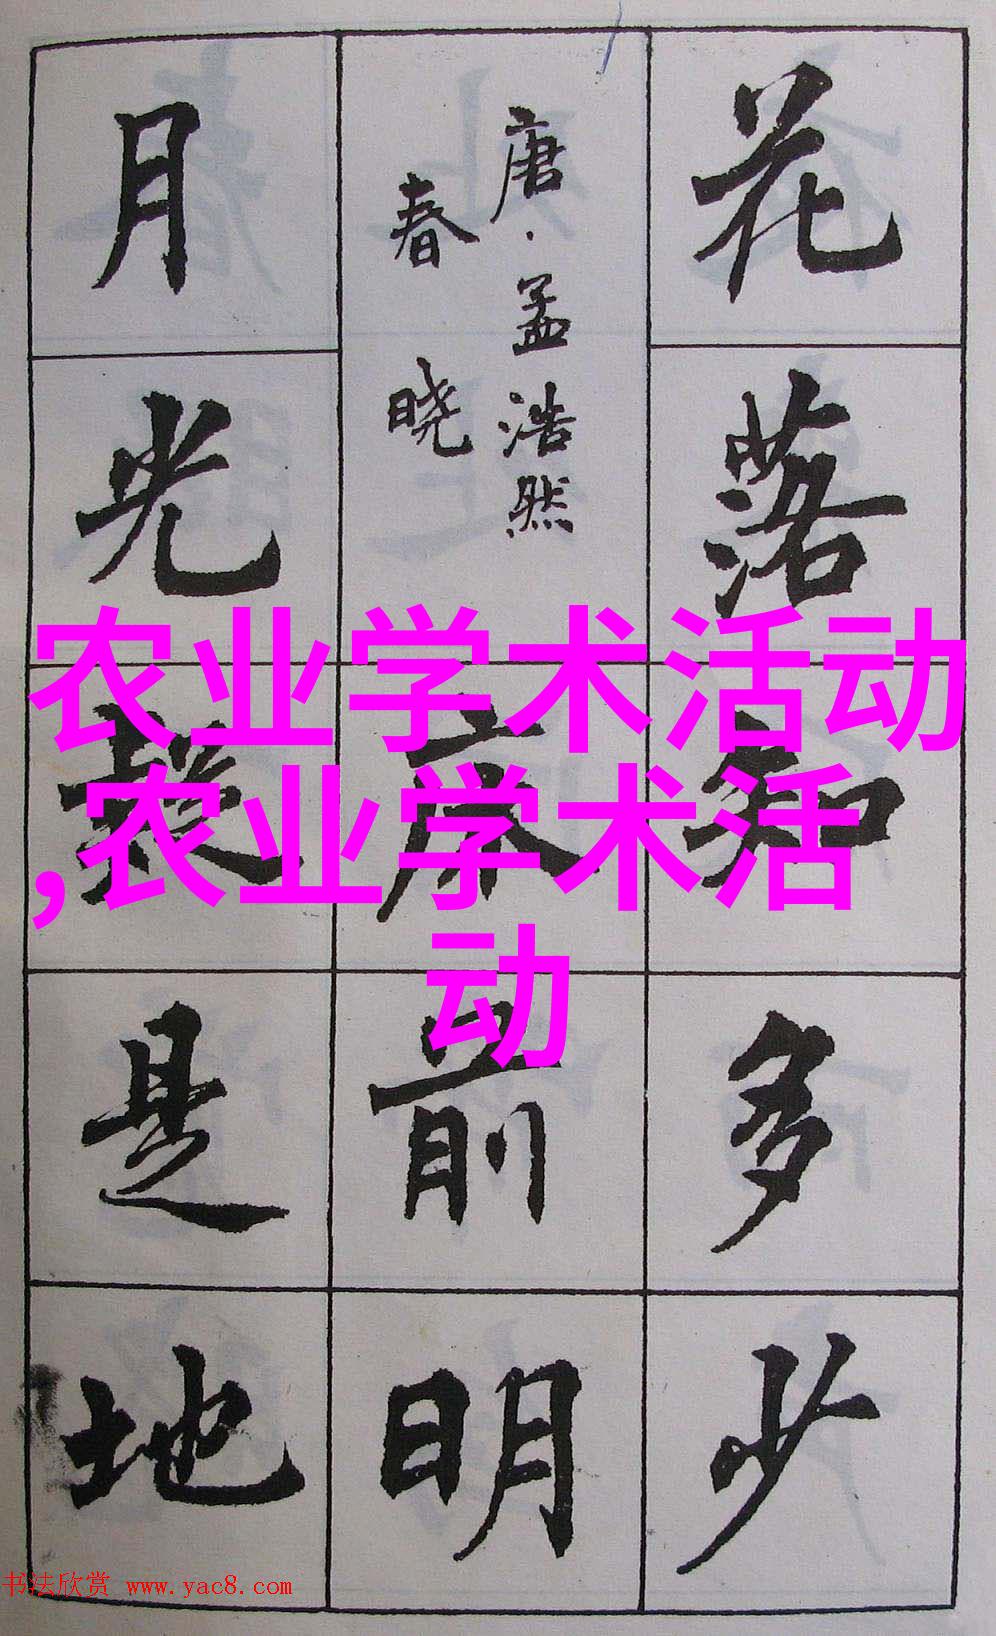 花落知多少
唐·孟浩然
春晓
床前明
月光疑是地
农业学术活动
,农业学术活
动
书法欣赏 www.yac8.com